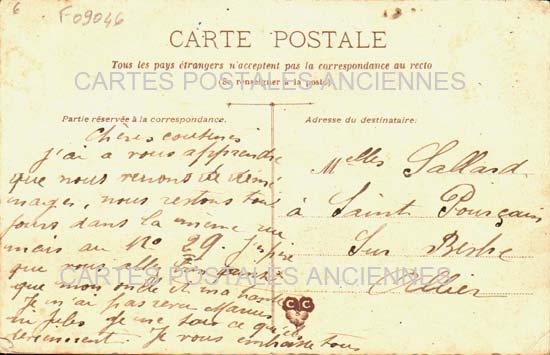 6
F09046
CARTE POSTALE
Tous les pays étrangers n'acceptent pas la correspondance au recto
(Se renseigner à la poste)
CARTES POSTALES ANCIENNES
Partie réservée à la correspondance.
Adresse du destinataire:
Chères cousines
j'ai a vous apprendre
que nous venons de démé
nager, nous restons tou
jours dans la même rue
mais au No 29. J'espère
que vous allez
que mon oncle et ma tante
Je n'ai pas revu
ni de vous ce qui
Je vous embrasse tous
Melles Sallard
à Saint Pourçain
Sur Besbre
Allier
CARTES POSTALES ANCIENNES
CC